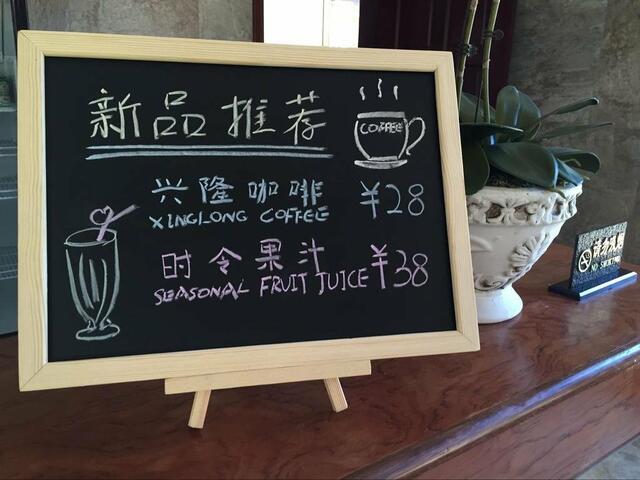 新品推荐
COFFEE
兴隆咖啡 ¥28
XINGLONG COFFEE
时令果汁 ¥38
SEASONAL FRUIT JUICE
请勿吸烟
NO SMOKING